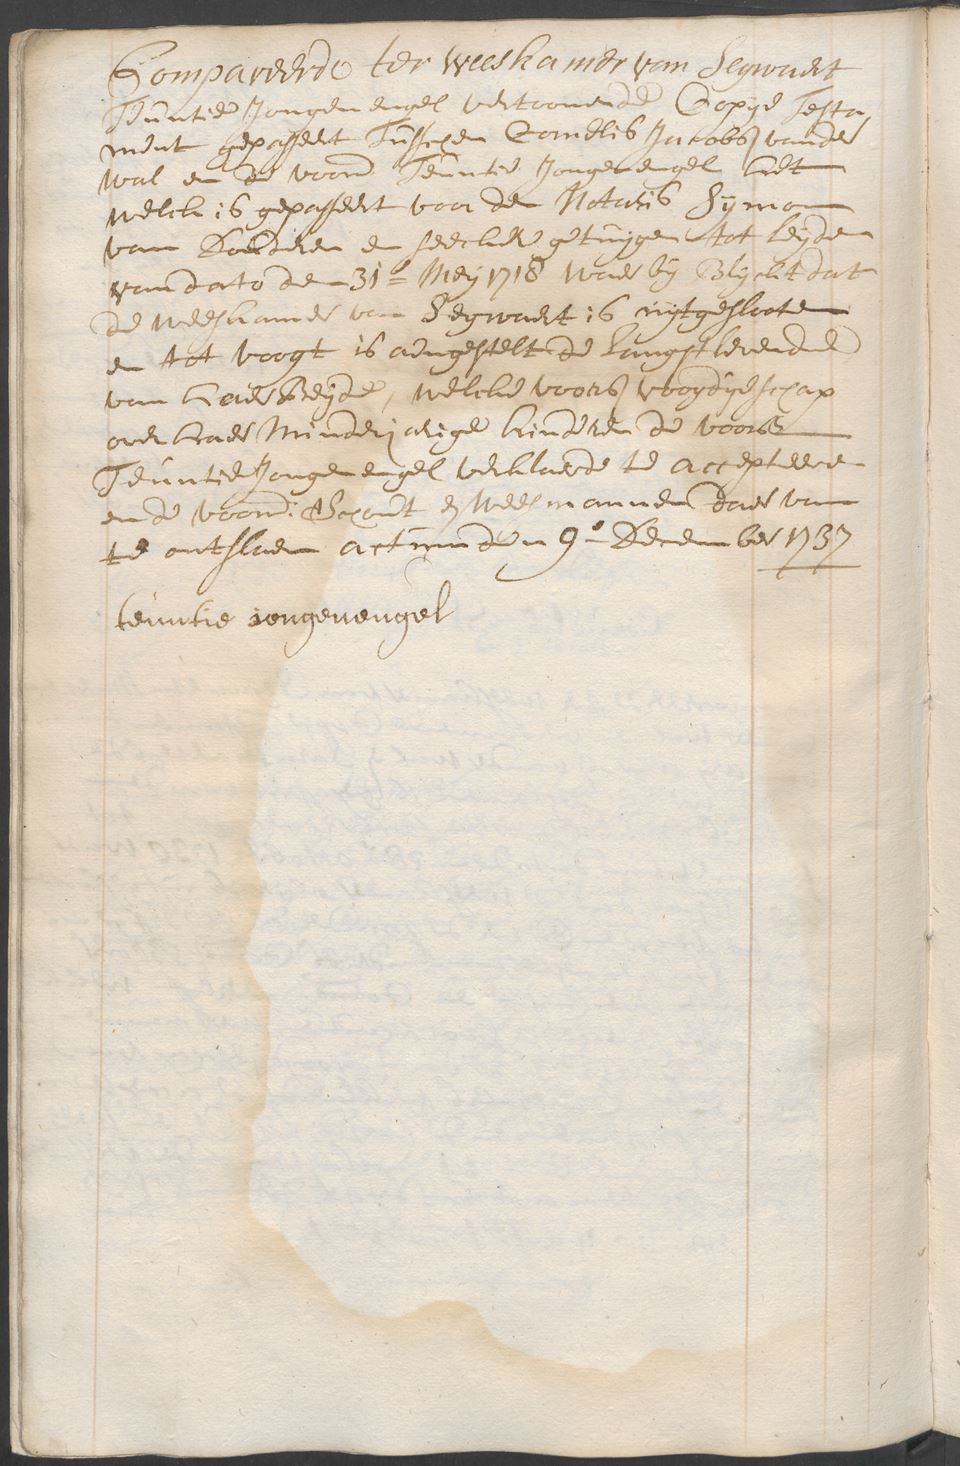 Compareerde ter weeskamer van Segwaert
Teuntie Jongenengel vertoonende Copije Testa
ment gepasseert Tusschen Cornelis Jacobs vander
Wal en de voorn Teuntie Jongenengel Het
welck is gepasseert voor den Notaris Symon
van en seeckere getuijgen tot Leyden
van dato den 31e Meij 1718 waer bij Blyckt dat
de weeskamer van Segwaert is uijtgeslooten
en tot voogt is aengestelt de Langstlevende
van haer Beijde, welcke voors voogdijeschap
over haer Minderjarige kinderen de voors
Teuntie Jongenengel verklaerde te accepteeren
en de voorn: Schout en Weesmannen daer van
te ontslaen actum den 9e December 1737
teuntie iongenengel